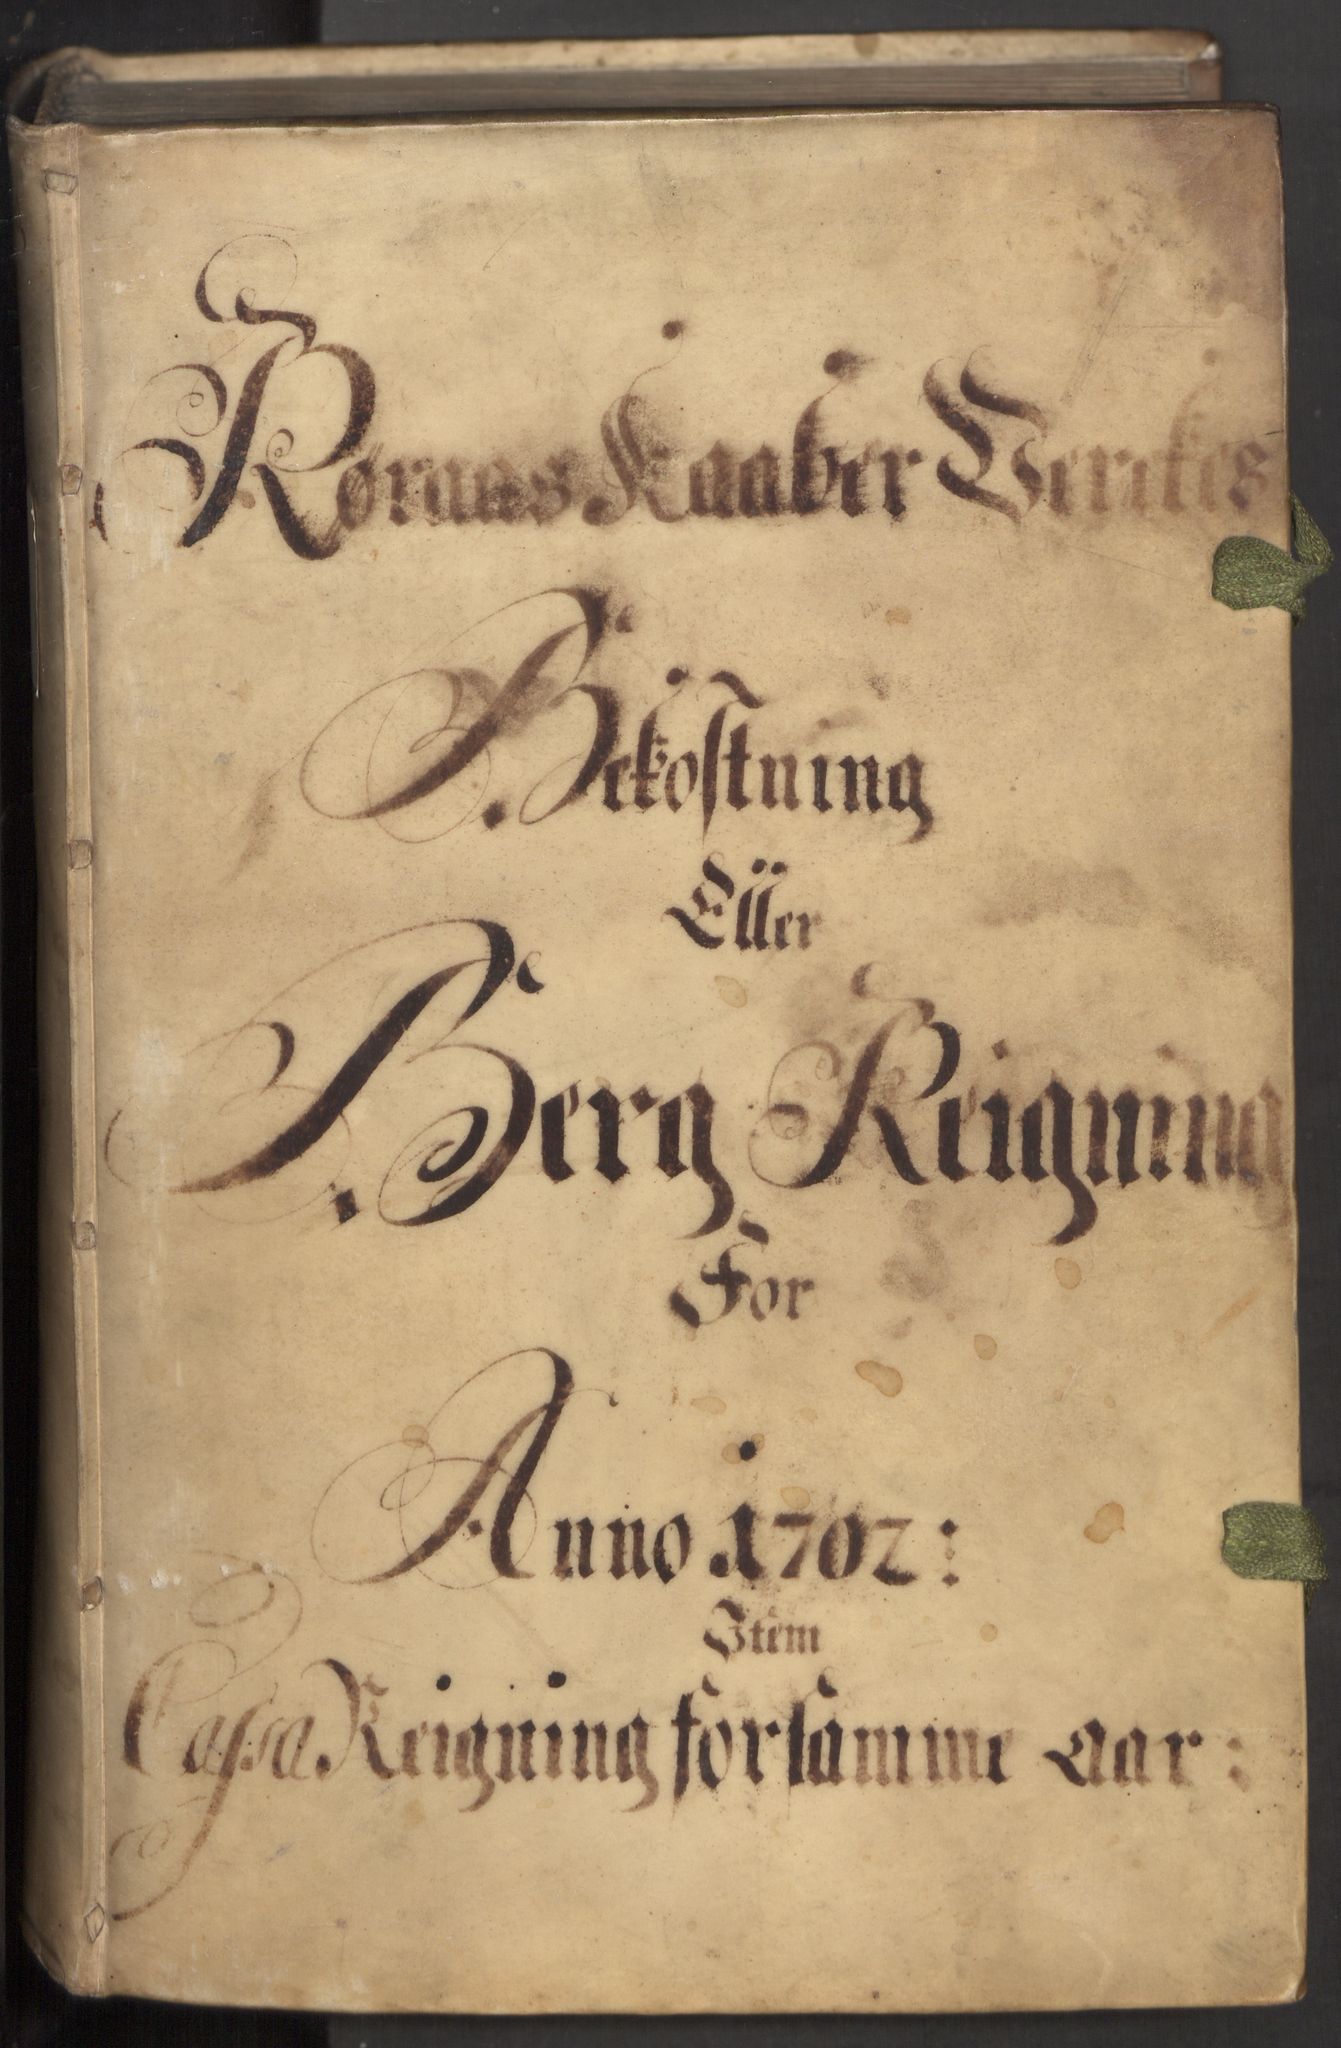 Røraas Kaaber Verckes
Bekostning
Eller
Berg Reigning
For
Anno 1702:
Item
Cassa Reigning for samme aar: